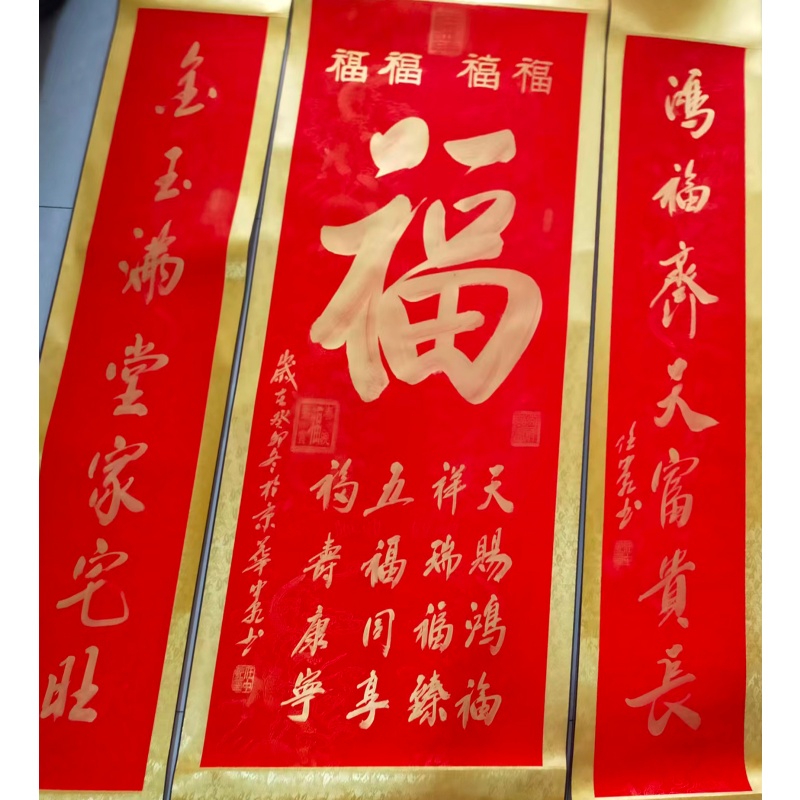 鸿福齐天富貴長
福福 禧福
福
天賜鸿福
祥瑞福臻
五福同享
福壽康寧
歲在癸卯冬於京華
金玉滿堂家宅旺